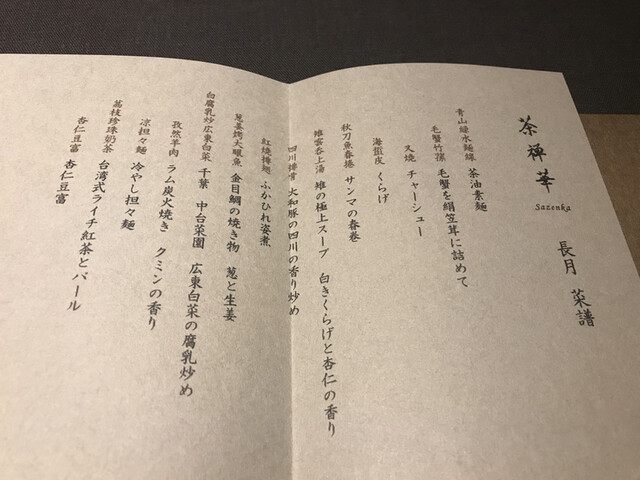 茶禅華
Sazenka
長月 菜譜
青山緑水麺線 茶油素麺
毛蟹竹蓀 毛蟹を絹笠茸に詰めて
叉焼 チャーシュー
海蜇皮 くらげ
秋刀魚春捲 サンマの春巻
雉雲呑上湯 雉の極上スープ 白きくらげと杏仁の香り
四川排骨 大和豚の四川の香り炒め
紅焼排翅 ふかひれ姿煮
葱姜烤大眼魚 金目鯛の焼き物 葱と生姜
白腐乳炒広東白菜 千葉 中台菜園 広東白菜の腐乳炒め
孜然羊肉 ラム炭火焼き クミンの香り
凉担々麺 冷やし担々麺
荔枝珍珠奶茶 台湾式ライチ紅茶とパール
杏仁豆富 杏仁豆富